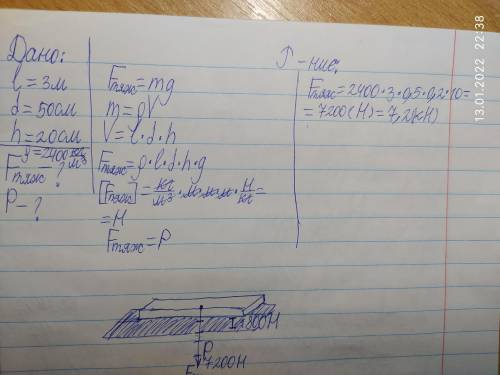 Дано:
l = 3м
d = 50см
h = 20см
ρ = 2400 кг/м³
Fтяж - ?
P - ?
Fтяж = mg
m = ρV
V = l·d·h
Fтяж = ρ·l·d·h·g
[Fтяж] = кг/м³ · м·м·м · Н/кг =
= Н
Fтяж = P
Р-ние:
Fтяж = 2400·3·0,5·0,2·10 =
= 7200(Н) = 7,2(кН)
1800Н
P
7200Н
F
13.01.2022 22:38